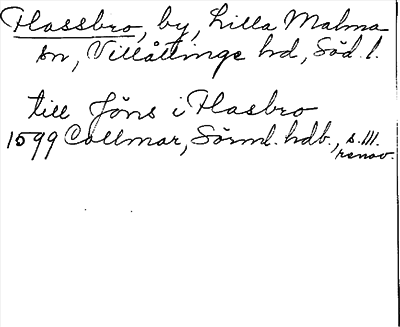 Flassbro, by, Lilla Malma
sn, Villåttinge hd, Söd. l.
till Jöns i Flasbro
1599 Collmar, Sörml. hdb., s. 111.
renov.